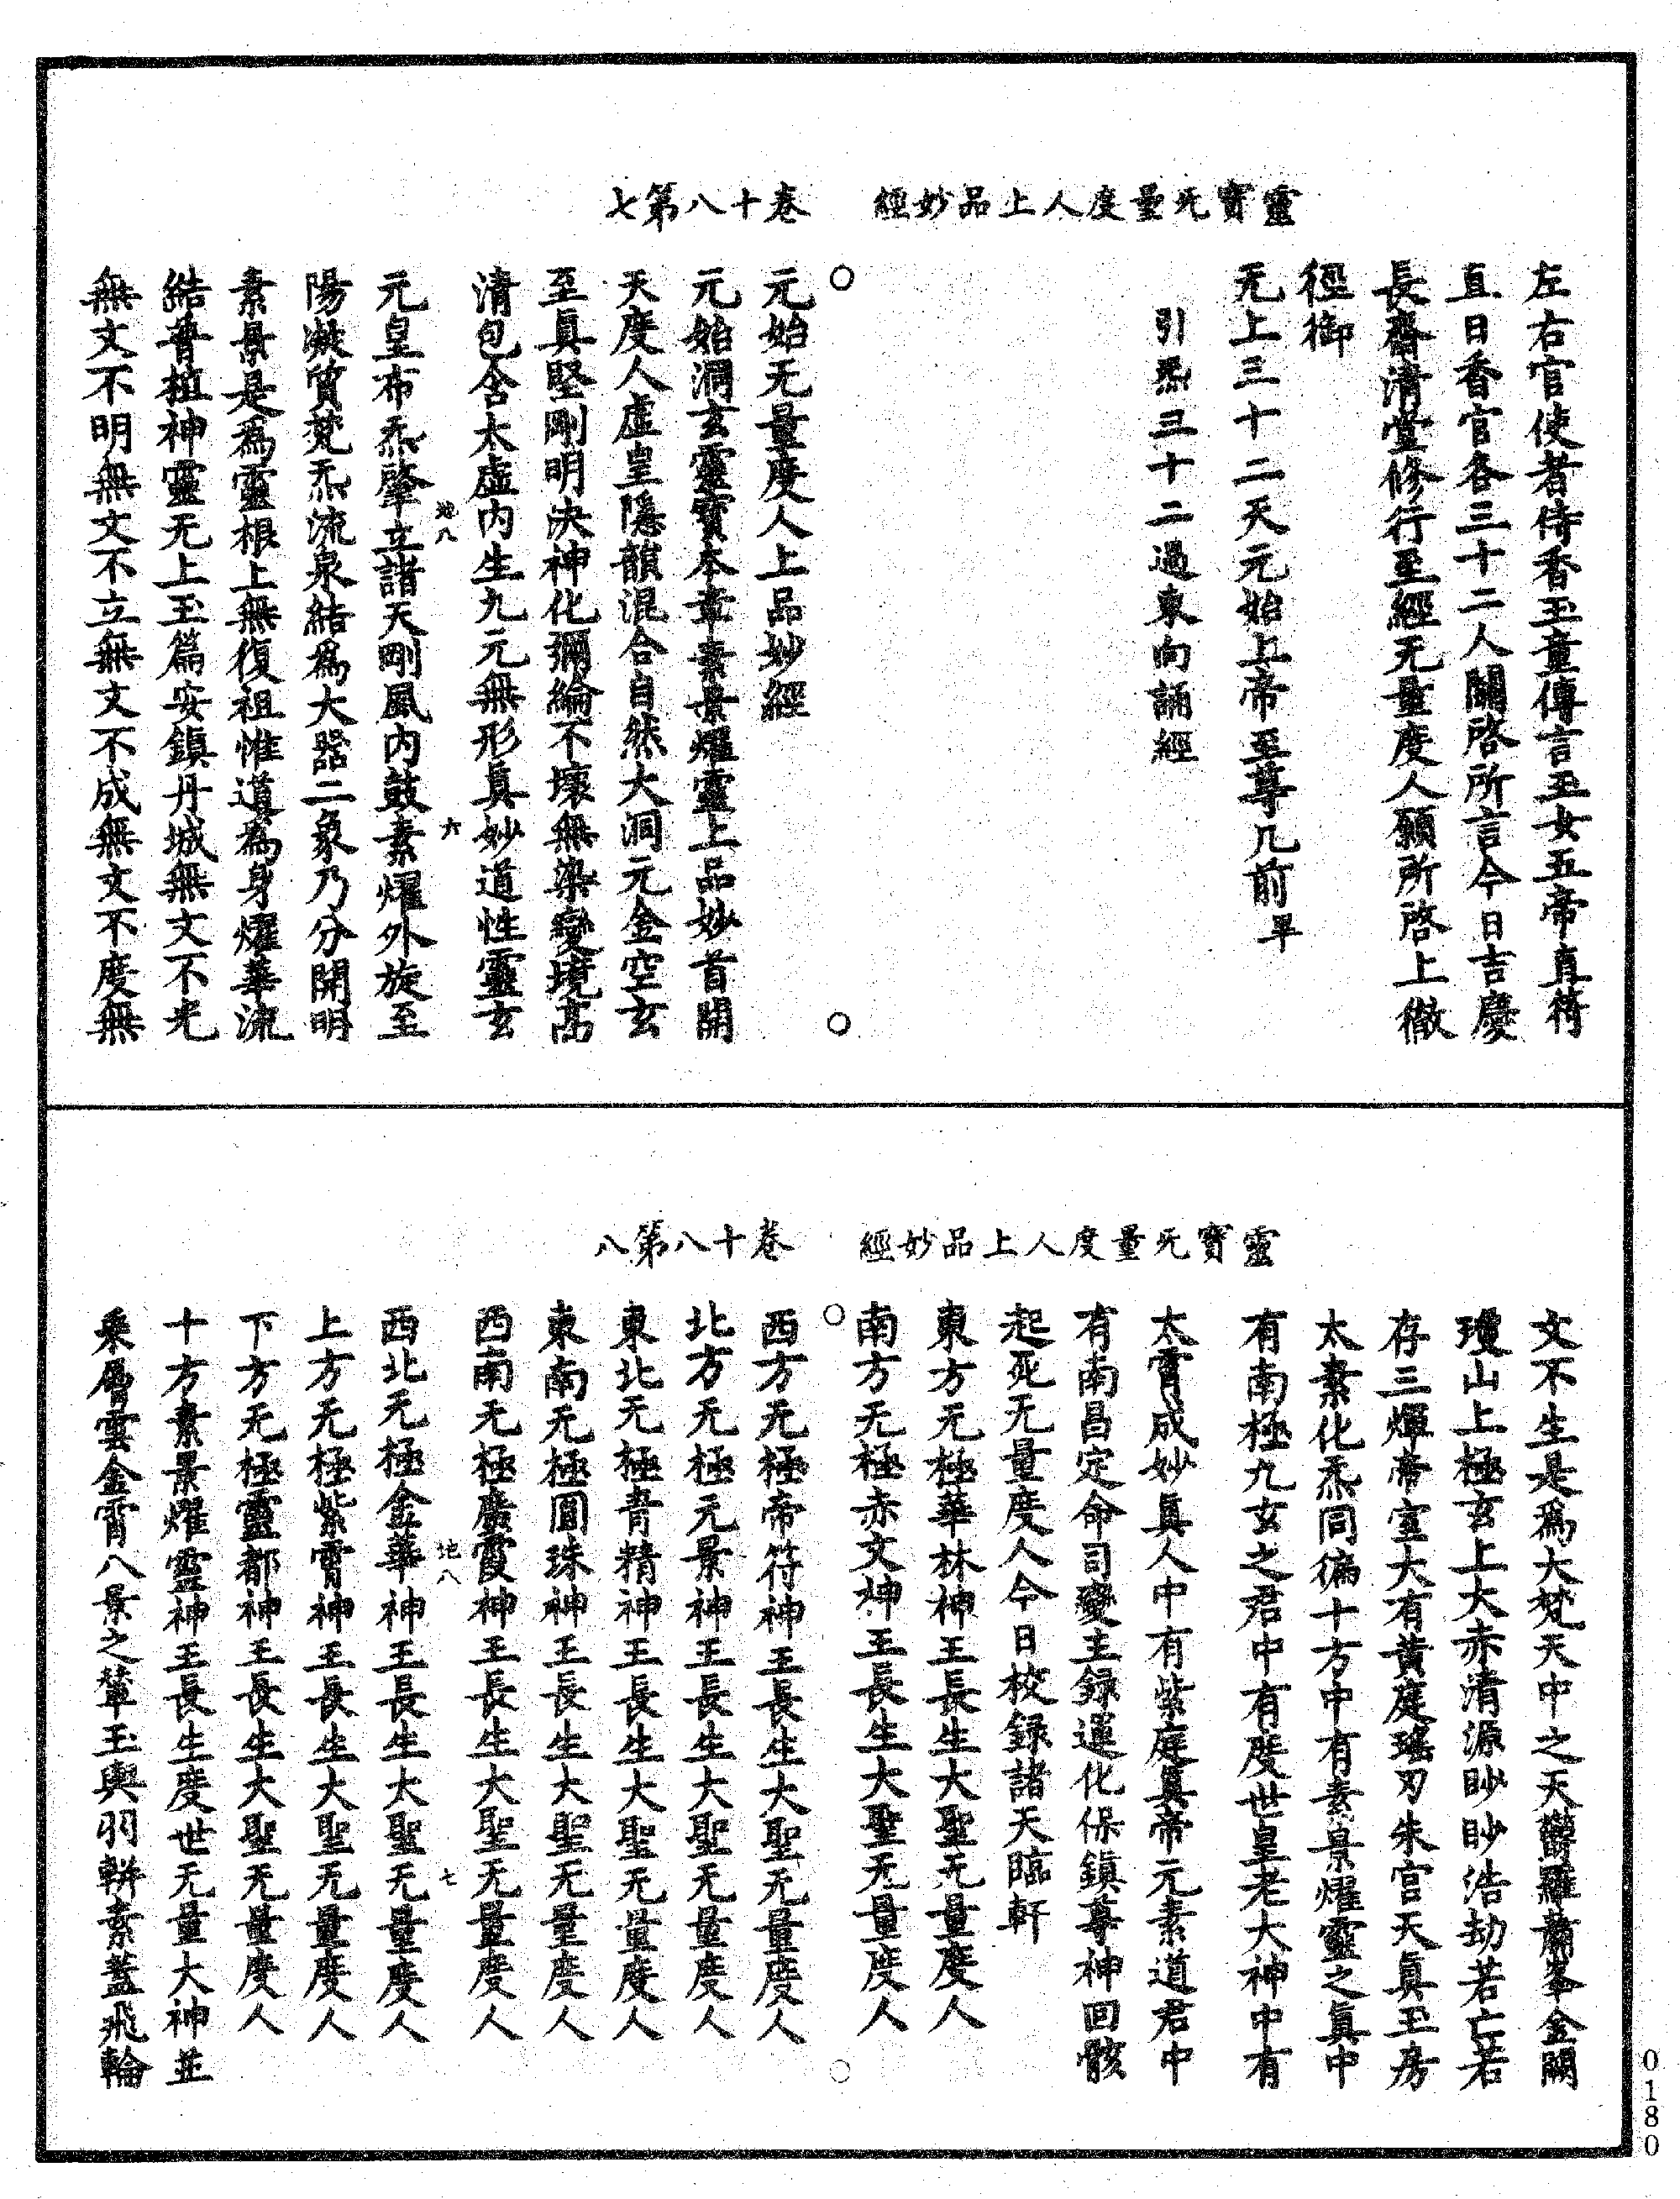 靈寶无量度人上品妙經　卷十八第七
左右官使者侍香玉童傳言玉女五帝直符
直日香官各三十二人關啓所言今日吉慶
長齋清堂修行至經无量度人願所啓上徹
徑御
无上三十二天元始上帝至尊几前畢
引炁三十二過東向誦經
元始无量度人上品妙經
元始洞玄靈寶本章素景燿靈上品妙首開
天度人虛皇隱韻混合自然大洞元金空玄
至真堅剛明決神化彌綸不壞無染變境高
清包含太虛內生九元無形真妙道性靈玄
地八　六
元皇布炁肇立諸天剛風內鼓素燿外旋至
陽凝質梵炁流泉結爲大器二象乃分開明
素景是爲靈根上無復祖惟道為身燿華流
結普植神靈无上玉篇安鎮丹城無文不光
無文不明無文不立無文不成無文不度無
靈寶无量度人上品妙經　卷十八第八
文不生是爲大梵天中之天鬱羅蕭峯金闕
瓊山上極玄上大赤清源眇眇浩劫若亡若
存三煇帝室大有黃庭瑤刃朱宮天真玉房
太素化炁同徧十方中有素景燿靈之真中
有南極九玄之君中有度世皇老大神中有
太霄成妙真人中有紫庭真帝元素道君中
有南昌定命司變主錄運化保鎮尊神回骸
起死无量度人今日校錄諸天臨軒
東方无極華林神王長生大聖无量度人
南方无極赤文神王長生大聖无量度人
西方无極帝符神王長生大聖无量度人
北方无極元景神王長生大聖无量度人
東北无極青精神王長生大聖无量度人
東南无極圓珠神王長生大聖无量度人
西南无極廣霞神王長生大聖无量度人
地八　七
西北无極金華神王長生大聖无量度人
上方无極紫霄神王長生大聖无量度人
下方无極靈都神王長生大聖无量度人
十方素景燿靈神王長生度世无量大神並
乘層雲金霄八景之輦玉輿羽軿素蓋飛輪
0180